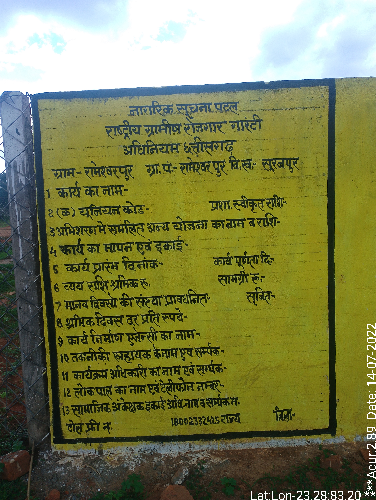 नागरिक सूचना पटल
राष्ट्रीय ग्रामीण रोजगार गारंटी
अधिनियम छत्तीसगढ़
ग्राम- रामेश्वरपुर ग्रा.पं- रामेश्वरपुर वि.ख. सूरजपुर
1 कार्य का नाम-
2 (क) यूनियन कोड- प्रशा. स्वीकृत राशि-
3 अभिशरण में समाहित अन्य योजना का नाम व राशि-
4 कार्य का मापन एवं इकाई-
5 कार्य प्रारंभ दिनांक- कार्य पूर्णता दि-
6 व्यय राशि श्रमिक रू. सामग्री रू.
7 मानव दिवसों की संख्या प्रावधानित- सृजित-
8 श्रमिक दिवस दर प्रति रूपये-
9 कार्य निर्माण एजेन्सी का नाम-
10 तकनीकी सहायक के नाम एवं सम्पर्क-
11 कार्यक्रम अधिकारी का नाम एवं सम्पर्क-
12 लोकपाल का नाम एवं टेलीफोन नम्बर-
13 सामाजिक अंकेक्षक इकाई अधि. नाम व सम्पर्क नं.
टोल फ्री नं. 18002332425 राज्य जिला-
Lat Lon-23.28.83.20
***Acur2.89 Date.14-07-2022